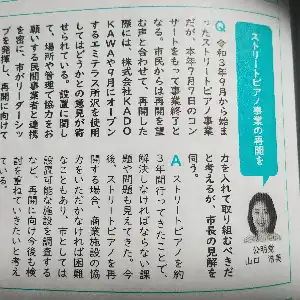 ストリートピアノ事業の再開を
Q 令和3年9月から始ま
ったストリートピアノ事業
だが、本年7月7日のコン
サートをもって事業終了と
なる。市民からは再開を望
む声と合わせて、再開した
際には、株式会社KADO
KAWAや9月にオープン
するエミテラス所沢を使用
してはどうかとの意見が寄
せられている。設置に関し
て、場所や管理で協力をお
願いする民間事業者と連携
を密に、市がリーダーシッ
プを発揮し、再開に向けて
力を入れて取り組むべきだ
と考えるが、市長の見解を
伺う。
A ストリートピアノを約
3年間行ってきたことで、
解決しなければならない課
題や問題も見えてきた。今
後、ストリートピアノを再
開する場合、商業施設の協
力をいただかなければ困難
なこともあり、市としては
設置可能な施設を調査する
など、再開に向け今後も検
討を重ねていきたいと考え
ている。
公明党
山口 浩美